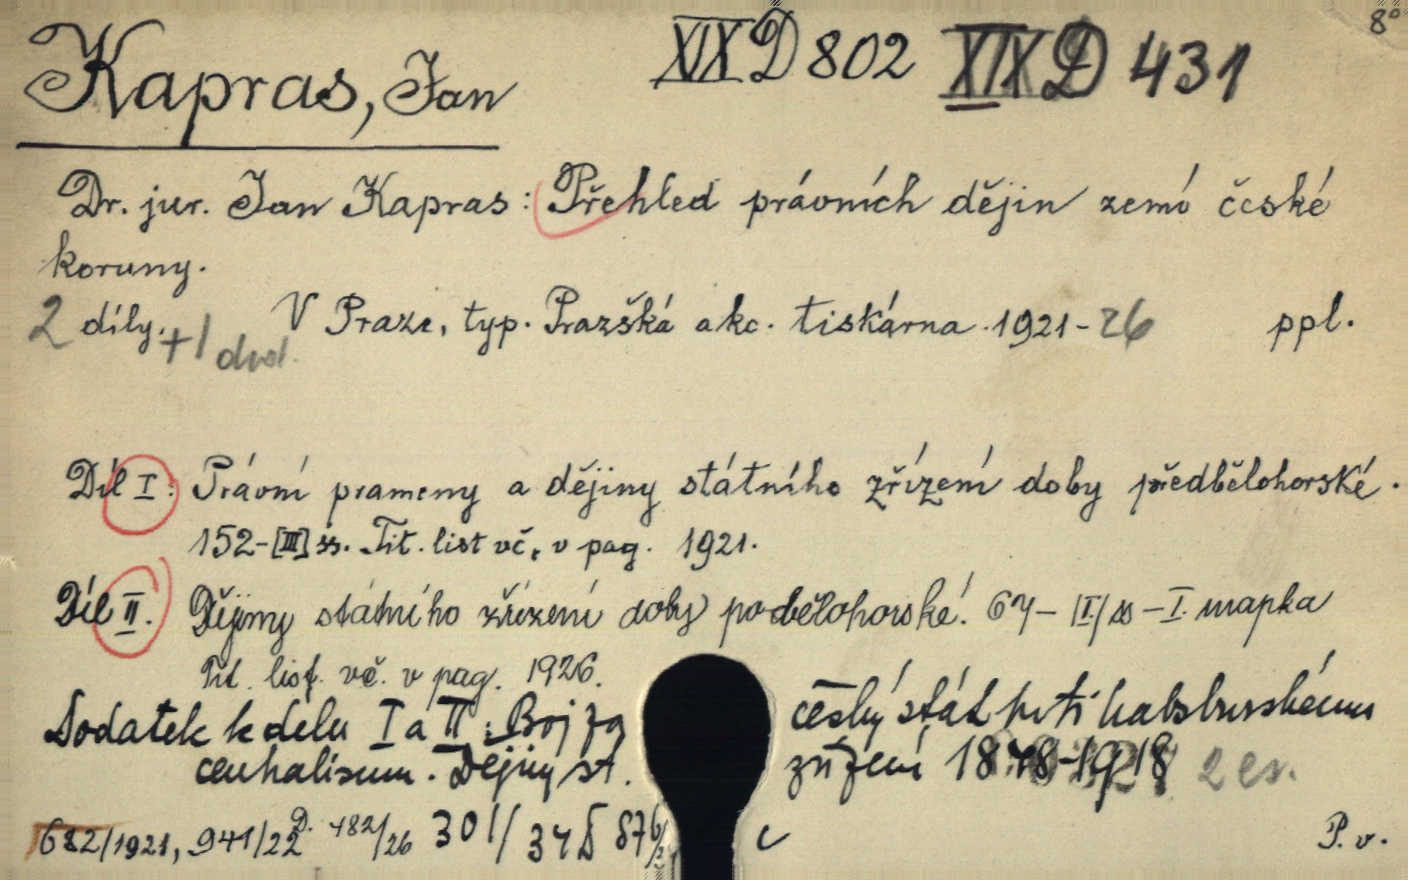 8°
XIX D 802 XIX D 431
Kapras, Jan
Dr. jur. Jan Kapras: Přehled právních dějin zemí české
koruny.
2 díly. +1 dod. V Praze, typ. Pražská akc. tiskárna 1921-26 ppl.
Díl I: Právní prameny a dějiny státního zřízení doby předbělohorské.
152-[III] ss. Tit. list vč. v pag. 1921.
Díl II. Dějiny státního zřízení doby pobělohorské! 67-[I] ss - I. mapka
Tit. list. vč. v pag. 1926.
Dodatek k dílu I a II: Boj za český stát proti habsburskému
centralismu. Dějiny st. zřízení 1848-1918 2 ex.
682/1921, 941/22 D. 482/26 301/
P. v.